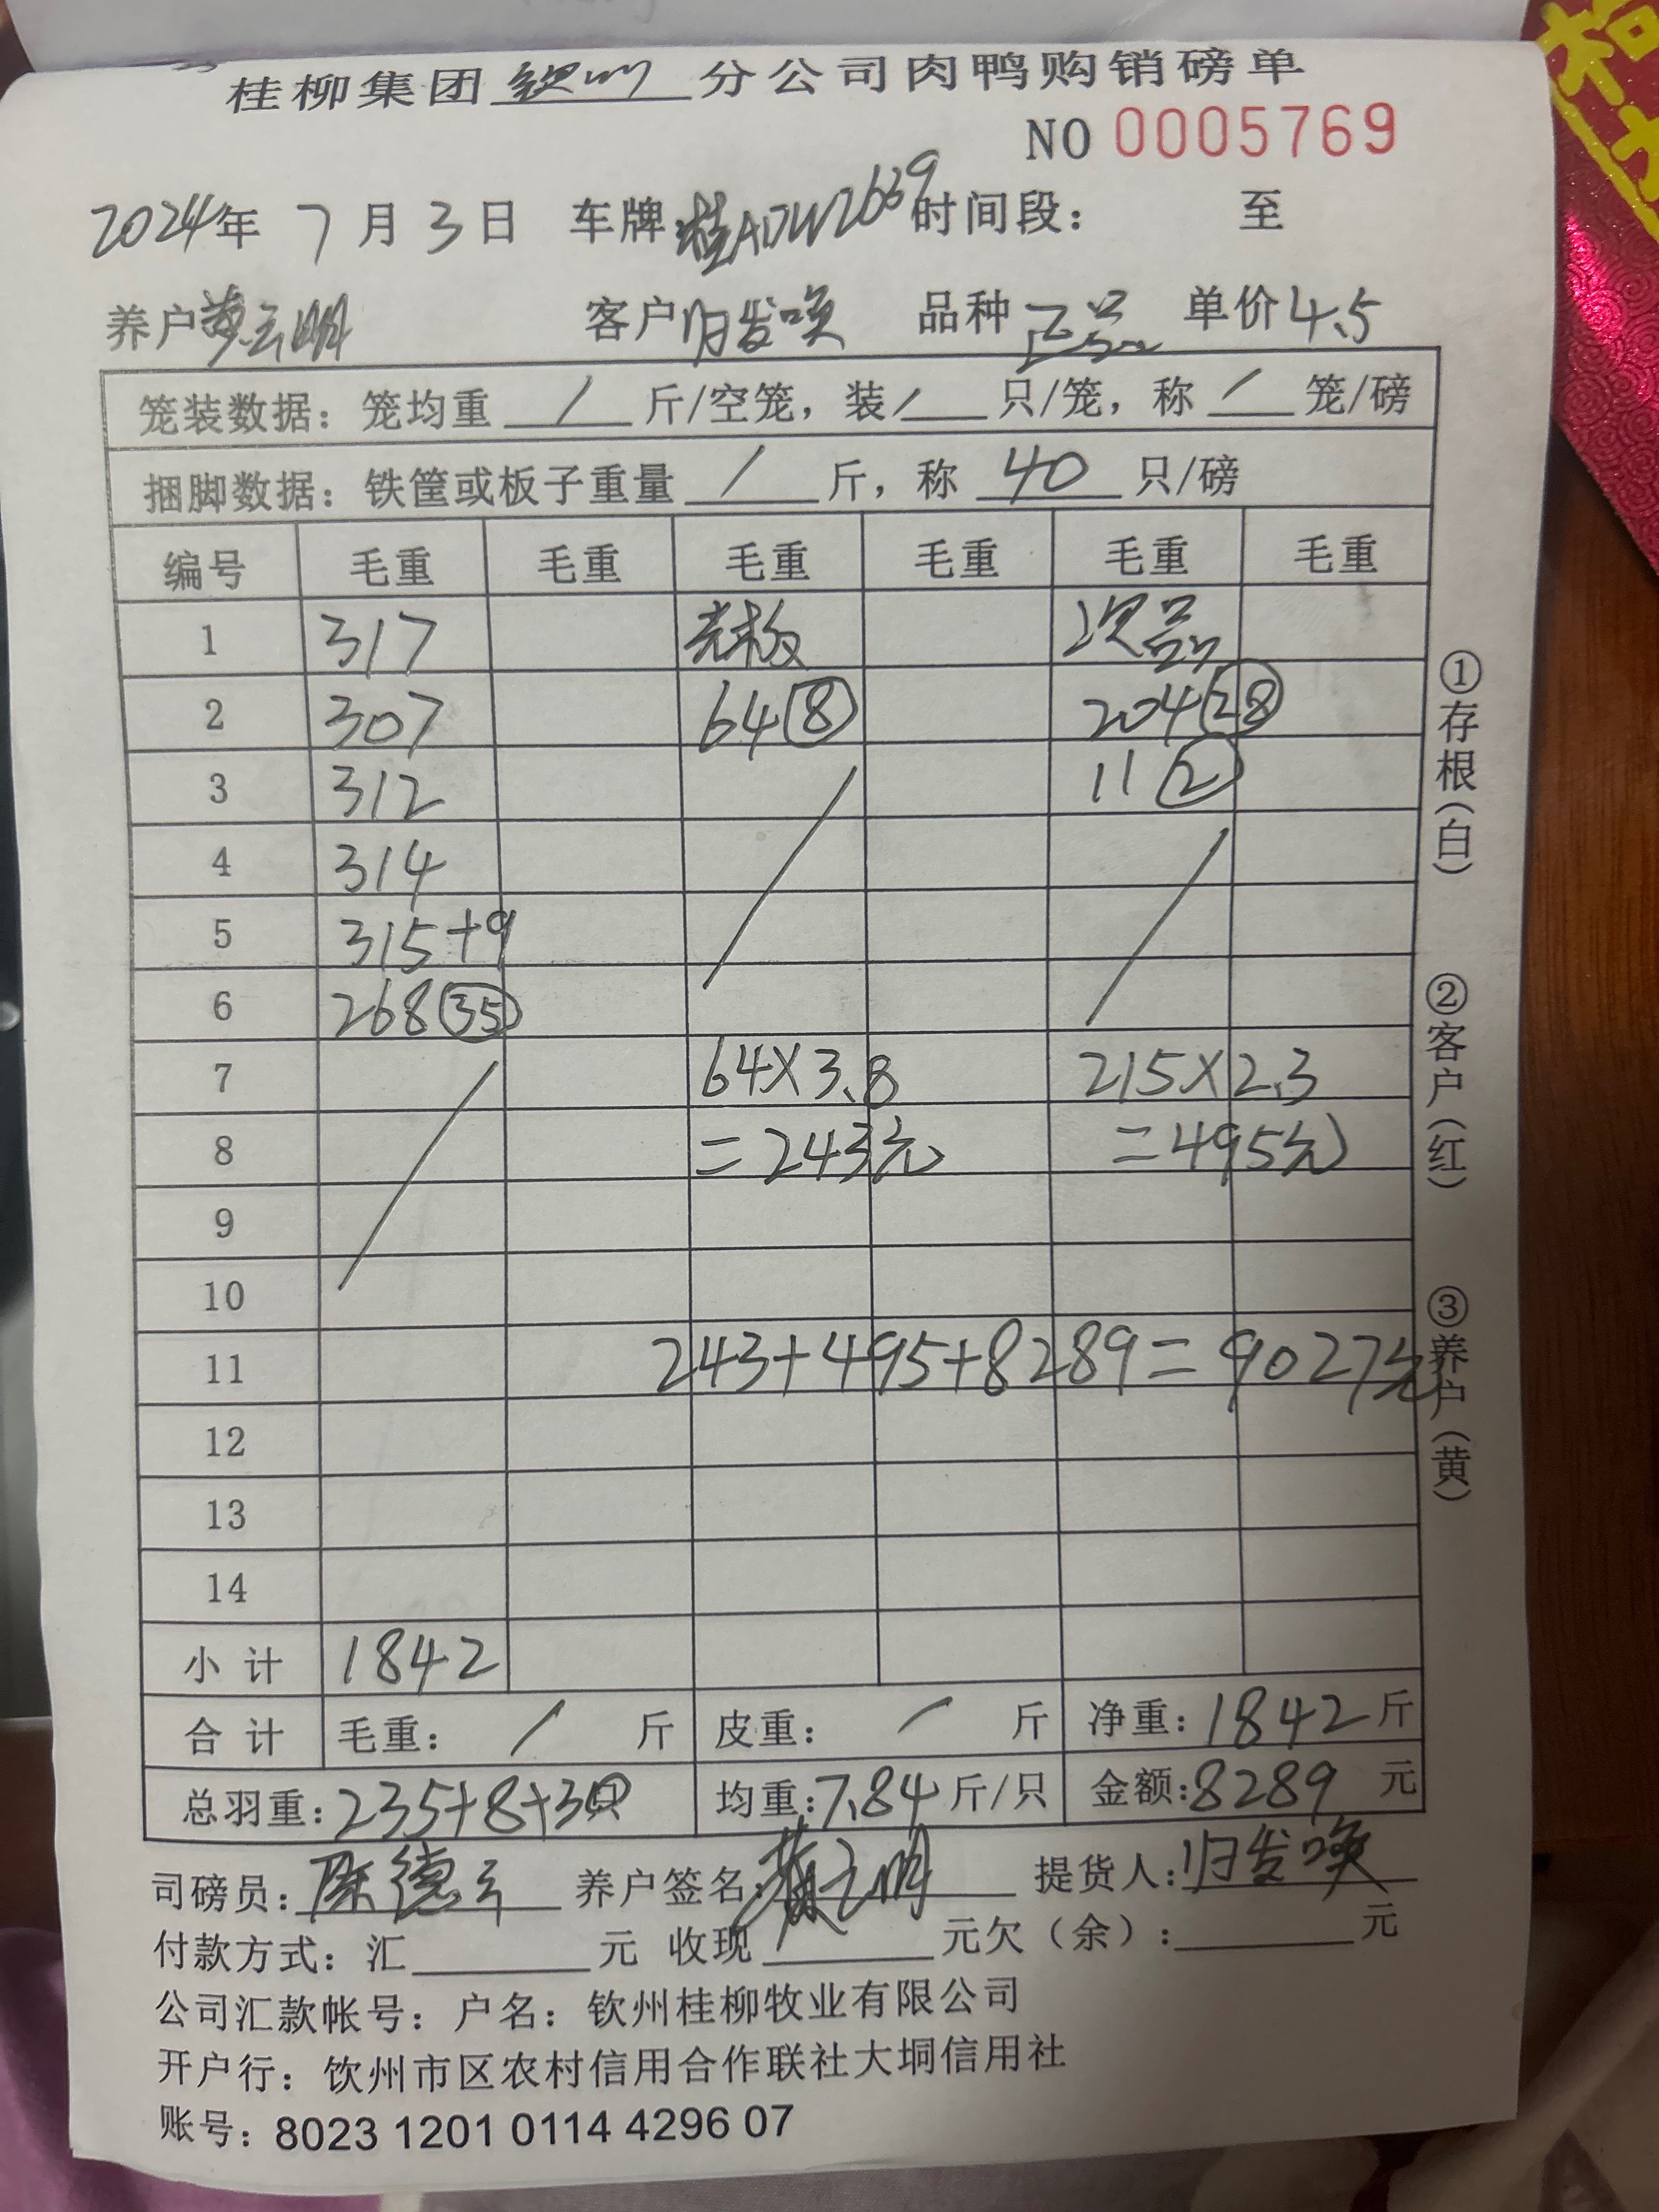 桂柳集团钦州分公司肉鸭购销磅单
NO 0005769
2024年 7月 3日 车牌桂A07W2669时间段： 至
养户黄云明 客户归发唤 品种正品 单价4.5
笼装数据：笼均重 / 斤/空笼，装 / 只/笼，称 / 笼/磅
捆脚数据：铁筐或板子重量 / 斤，称 40 只/磅
编号 毛重 毛重 毛重 毛重 毛重 毛重
1 317 次品
2 307 64⑧ 204㉘
3 312 11②
4 314
5 315+9
6 268㉟
7 64×3.8 215×2.3
8 =243元 =495元
9
10
11 243+495+8289=9027元
12
13
14
小计 1842
合计 毛重： / 斤 皮重： / 斤 净重：1842斤
总羽重：235+8+30只 均重：7.84斤/只 金额：8289 元
司磅员：陈德云 养户签名：黄云明 提货人：归发唤
付款方式：汇 元 收现 元欠（余）： 元
公司汇款帐号：户名：钦州桂柳牧业有限公司
开户行：钦州市区农村信用合作联社大垌信用社
账号：8023 1201 0114 4296 07
①存根（白）
②客户（红）
③养户（黄）